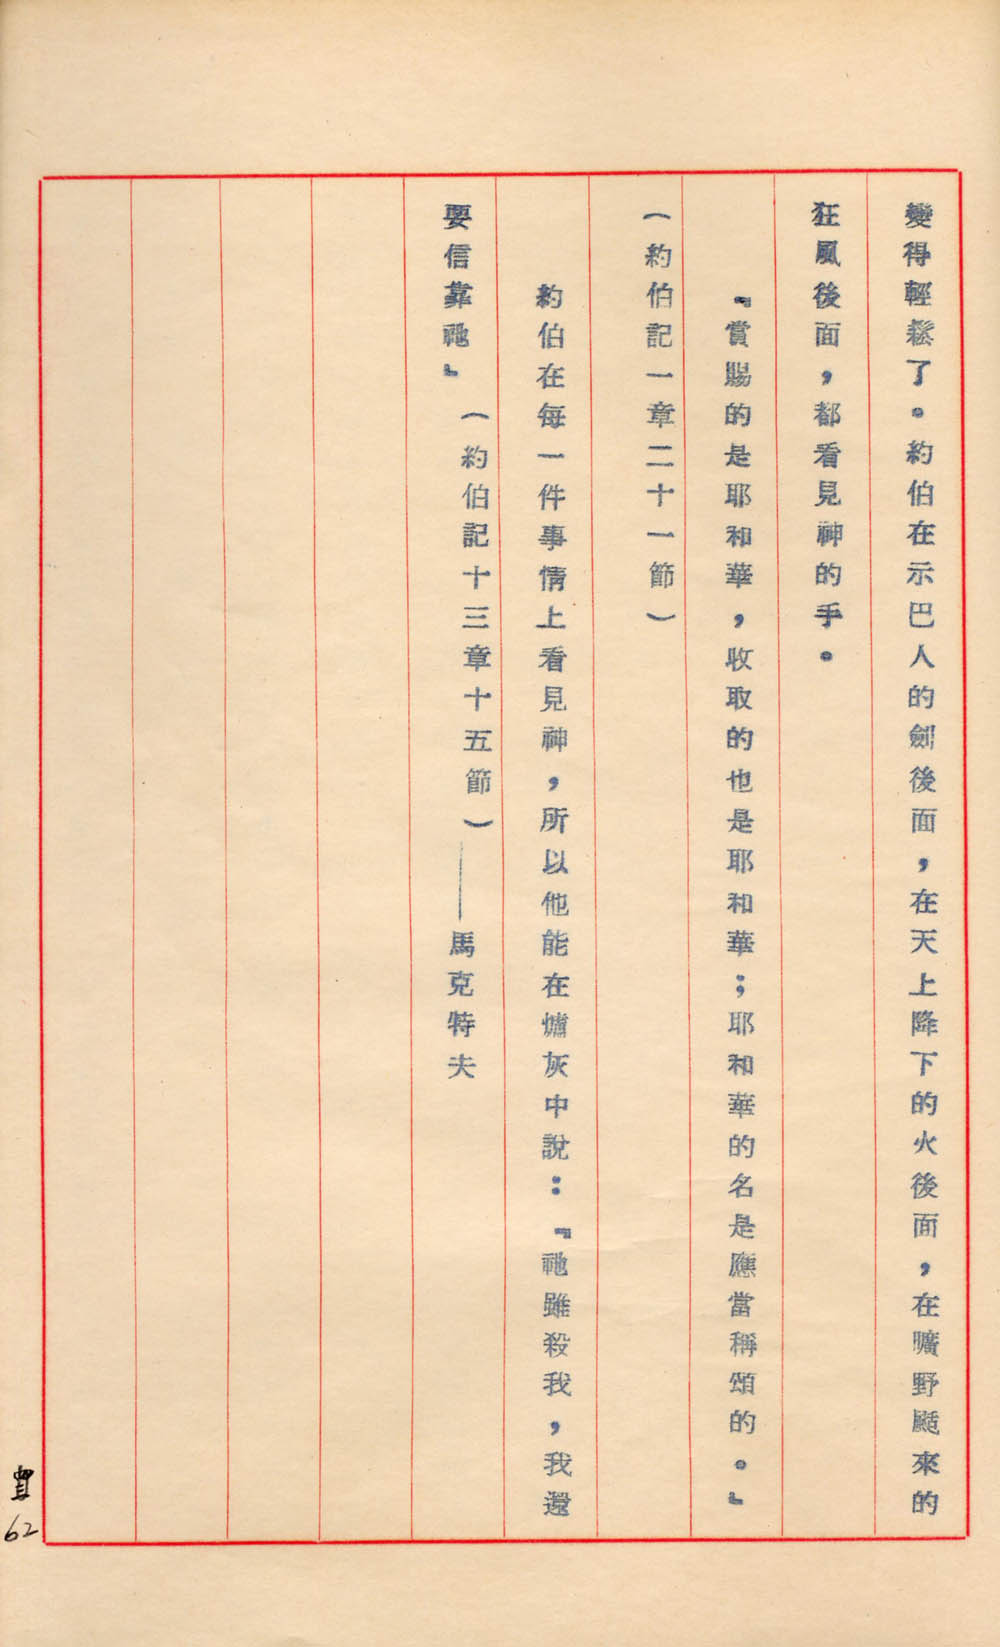 變得輕鬆了。約伯在示巴人的劍後面,在天上降下的火後面,在曠野颳來的
狂風後面,都看見神的手。
『賞賜的是耶和華,收取的也是耶和華;耶和華的名是應當稱頌的。』
(約伯記一章二十一節)
約伯在每一件事情上看見神,所以他能在爐灰中說:『祂雖殺我,我還
要信靠祂』(約伯記十三章十五節)——馬克特夫
62